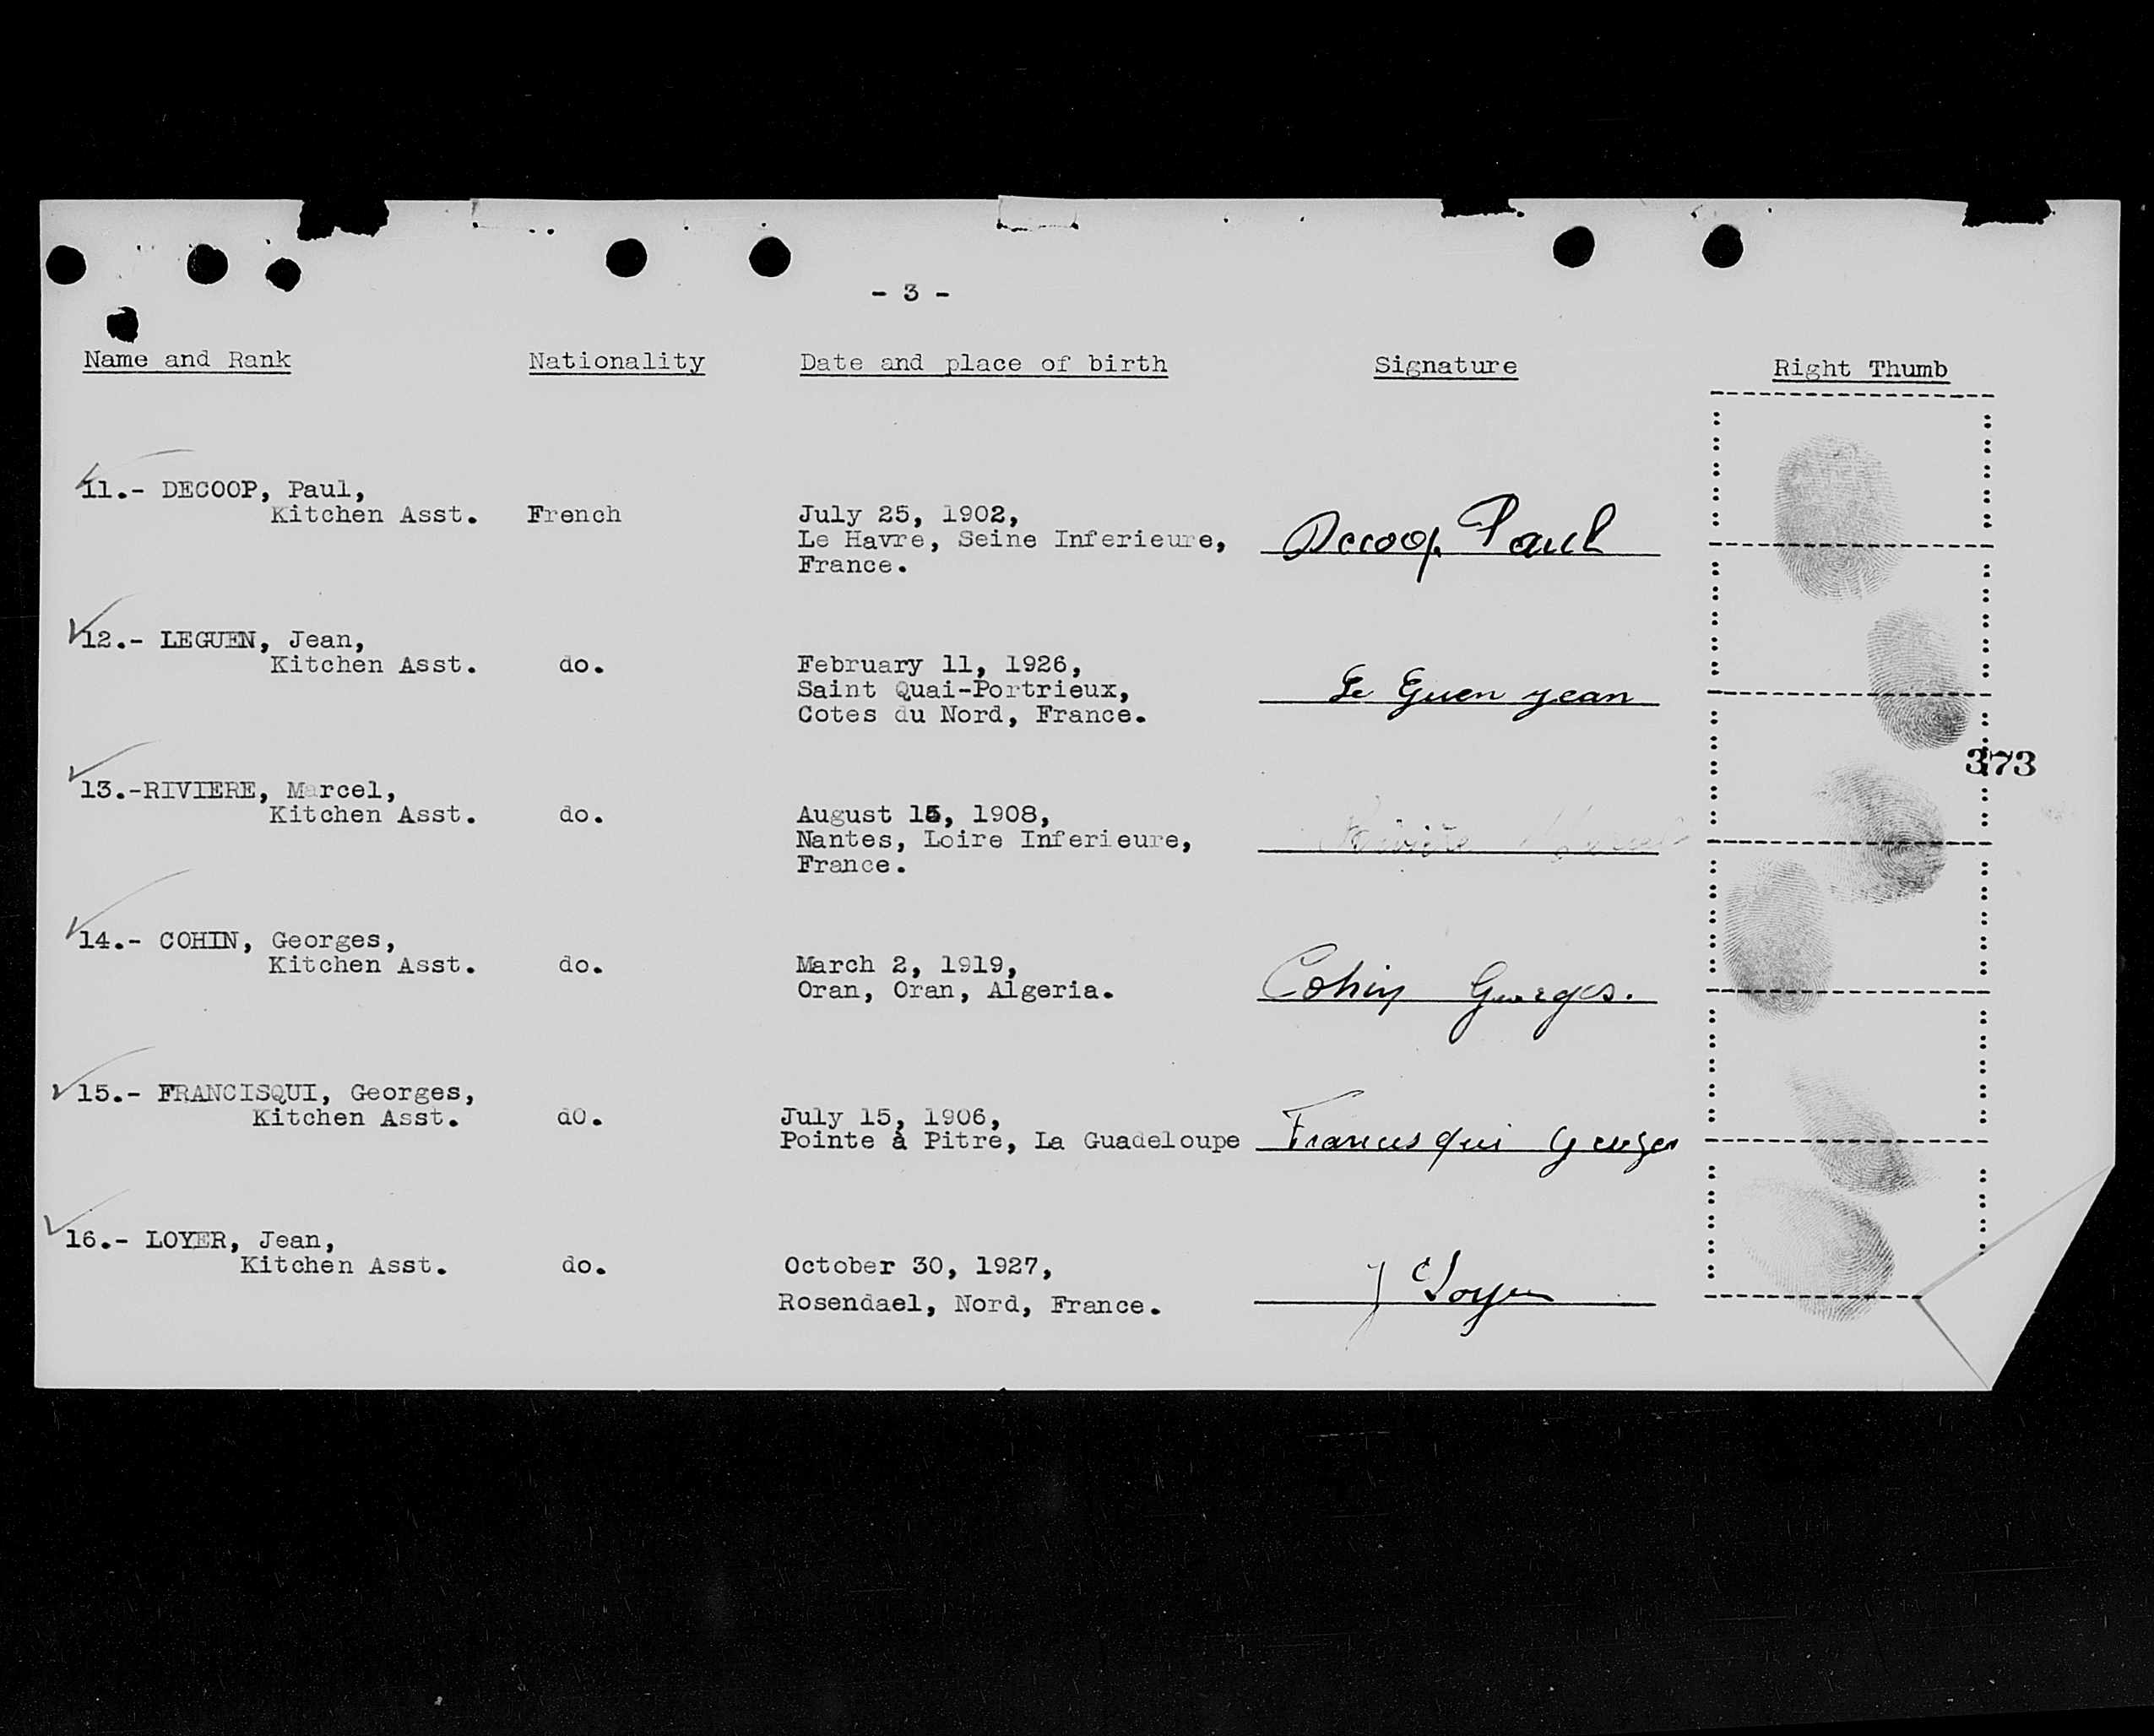 - 3 -
Name and Rank Nationality Date and place of birth Signature Right Thumb
11.- DECOOP, Paul,
Kitchen Asst. French July 25, 1902,
Le Havre, Seine Inferieure, Decoop Paul
France.
12.- LEGUEN, Jean,
Kitchen Asst. do. February 11, 1926,
Saint Quai-Portrieux, Le Guen Jean
Cotes du Nord, France.
373
13.-RIVIERE, Marcel,
Kitchen Asst. do. August 15, 1908,
Nantes, Loire Inferieure, Rivière Marcel
France.
14.- COHIN, Georges,
Kitchen Asst. do. March 2, 1919,
Oran, Oran, Algeria. Cohin Georges.
15.- FRANCISQUI, Georges,
Kitchen Asst. dO. July 15, 1906,
Pointe à Pitre, La Guadeloupe Francisqui Georges
16.- LOYER, Jean,
Kitchen Asst. do. October 30, 1927,
Rosendael, Nord, France. J Loyer